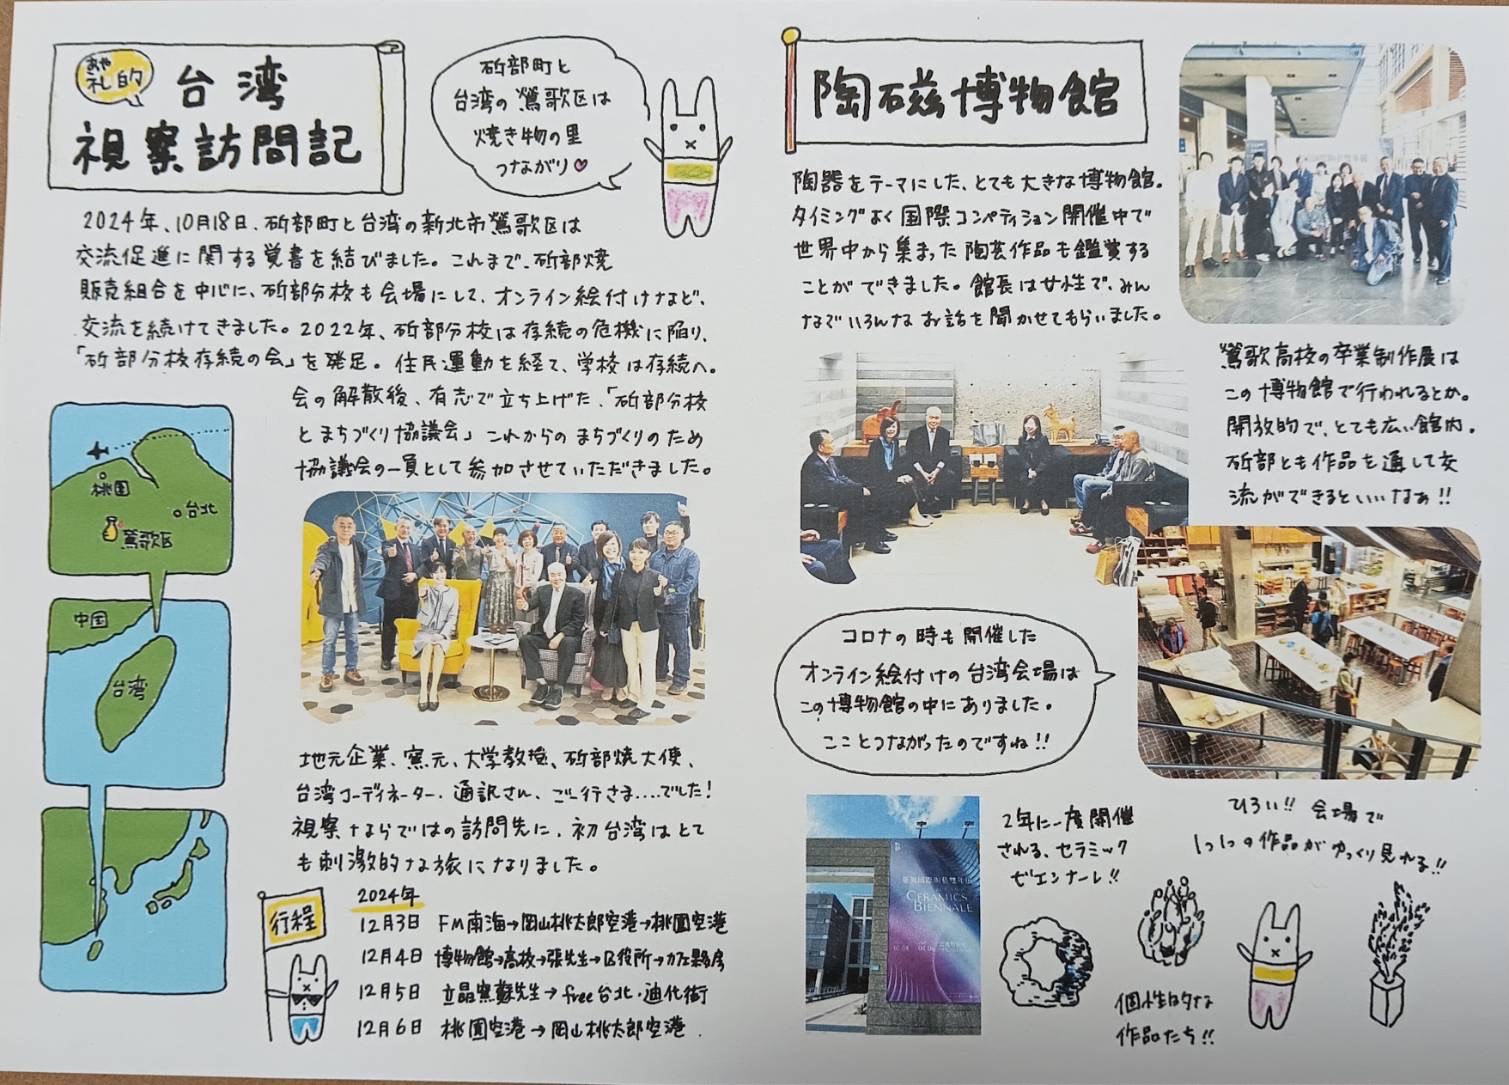 あや
礼的
台湾
視察訪問記
砥部町と
台湾の鶯歌区は
焼き物の里
つながり♡
2024年、10月18日、砥部町と台湾の新北市鶯歌区は
交流促進に関する覚書を結びました。これまで、砥部焼
販売組合を中心に、砥部分校も会場にして、オンライン絵付けなど、
交流を続けてきました。2022年、砥部分校は存続の危機に陥り、
「砥部分校存続の会」を発足。住民運動を経て、学校は存続へ。
会の解散後、有志で立ち上げた、「砥部分校
とまちづくり協議会」これからのまちづくりのため
協議会の一員として参加させていただきました。
桃園
台北
鶯歌区
中国
台湾
地元企業、窯元、大学教授、砥部焼大使、
台湾コーディネーター、通訳さん、ご一行さま....でした!
視察ならではの訪問先に、初台湾はとて
も刺激的な旅になりました。
行程
2024年
12月3日 FM南海→岡山桃太郎空港→桃園空港
12月4日 博物館→高校→張先生→区役所→カフェ厨房
12月5日 立晶窯蘇先生→free台北・迪化街
12月6日 桃園空港→岡山桃太郎空港
陶磁博物館
陶器をテーマにした、とても大きな博物館。
タイミングよく国際コンペティション開催中で
世界中から集まった陶芸作品も鑑賞する
ことができました。館長は女性で、みん
なでいろんなお話を聞かせてもらいました。
鶯歌高校の卒業制作展は
この博物館で行われるとか。
開放的で、とても広い館内。
砥部とも作品を通して交
流ができるといいなぁ!!
コロナの時も開催した
オンライン絵付けの台湾会場は
この博物館の中にありました。
こことつながったのですね!!
CERAMICS
BIENNALE
2年に一度開催
される、セラミック
ビエンナーレ!!
ひろい!! 会場で
1つ1つの作品がゆっくり見れる!!
個性的な
作品たち!!